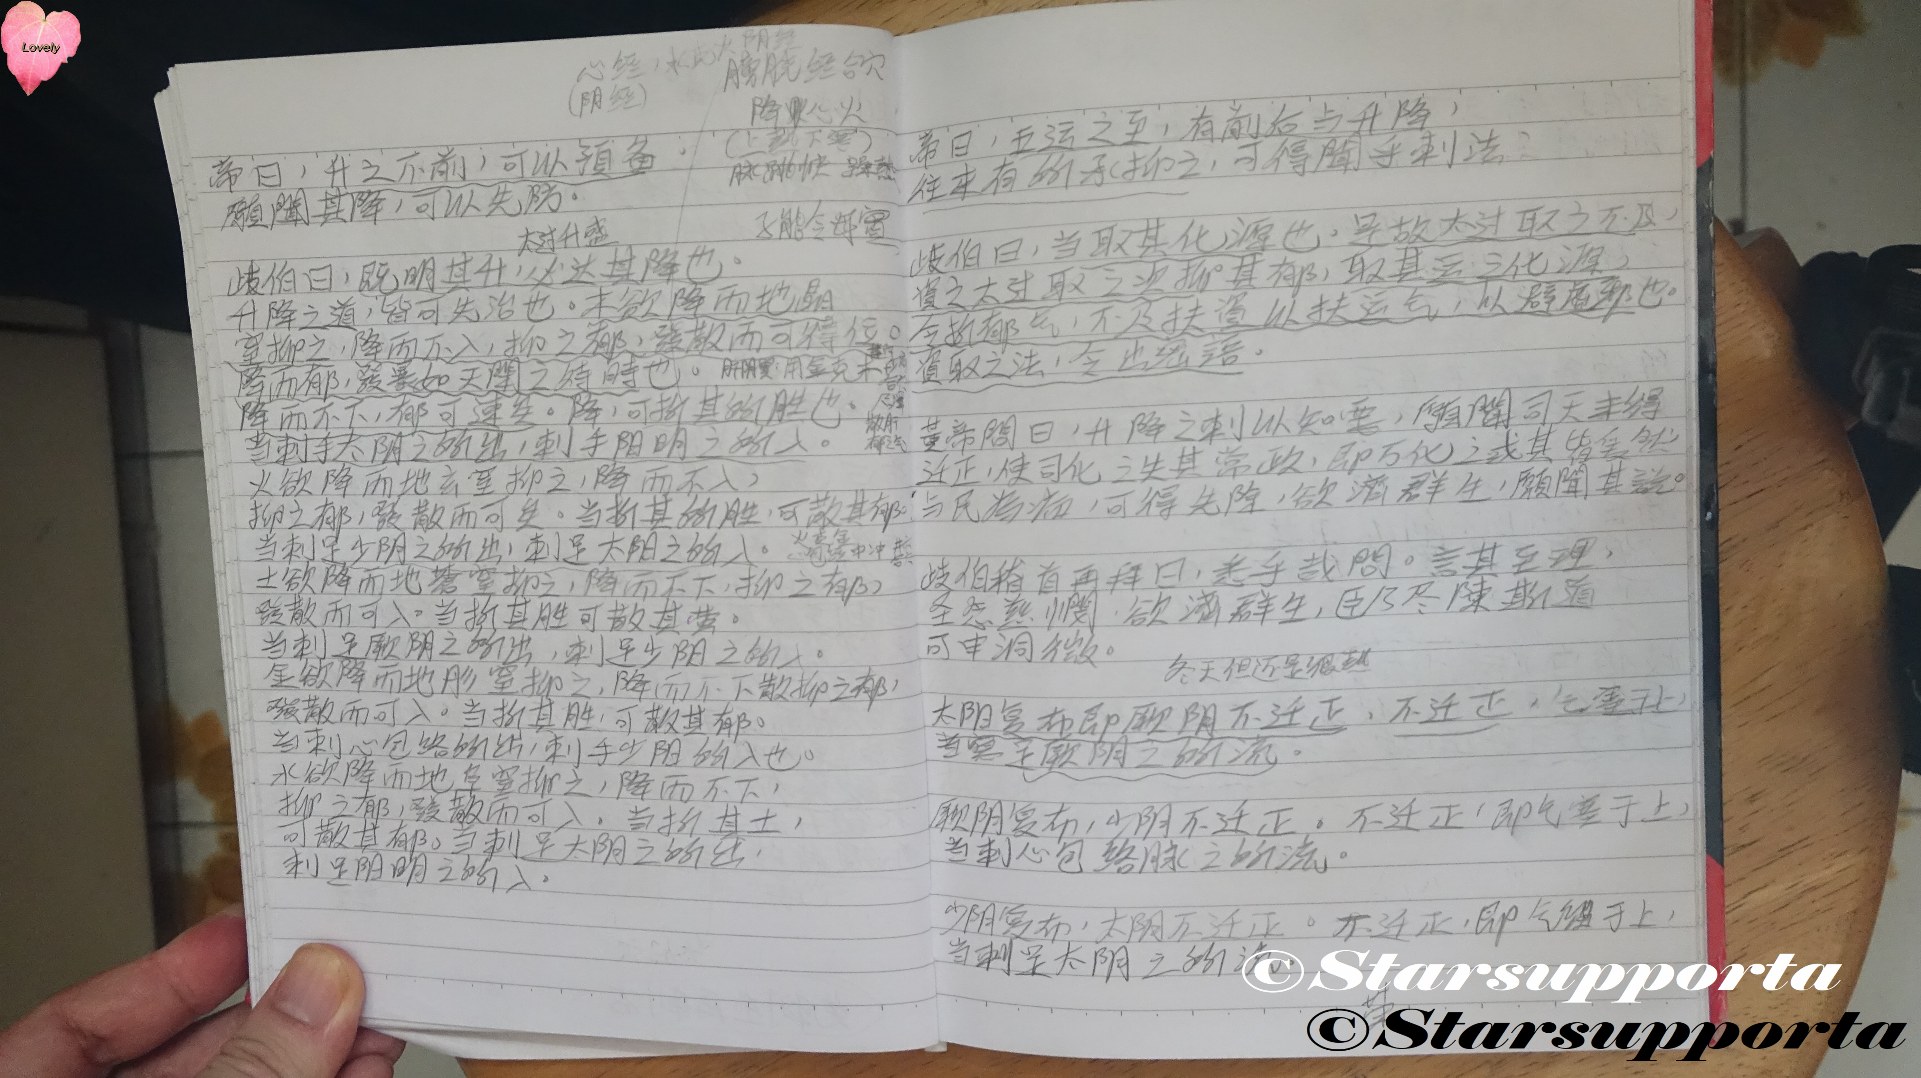 Lovely
心经
(阴经)
膀胱经欲
降
帝曰，升之不前，可以預备。
願聞其降，可以先防。
太过升盛
岐伯曰，既明其升，必达其降也。
升降之道，皆可先治也。木欲降而地晶
窒抑之，降而不入，抑之郁，發散而可得位。
降而郁，發暴如天間之待時也。
降而不下，郁可速矣。降，可折其所胜也。
当刺手太阴之所出，刺手阳明之所入。
火欲降而地玄窒抑之，降而不入，
抑之郁，發散而可矣。当折其所胜，可散其郁。
当刺足少阴之所出，刺足太阴之所入。
土欲降而地蒼窒抑之，降而不下，抑之郁，
發散而可入。当折其胜可散其
当刺足厥阴之所出，刺足少阴之所入。
金欲降而地彤窒抑之，降而不下散抑之郁，
發散而可入。当折其胜，可散其郁。
当刺心包络所出，刺手少阴所入也。
水欲降而地阜窒抑之，降而不下，
抑之郁，發散而可入。当折其土，
可散其郁。当刺足太阴之所出，
刺足阳明之所入。
帝曰，五运之至，有前后与升降，
往来有所承抑之，可得聞乎刺法
岐伯曰，当取其化源也。是故太过取之不及
資之太过取之次抑其郁，取其运之化源，
令折郁气，不及扶資以扶运气，以辟虛邪也。
資取之法，令出密語。
黃帝問曰，升降之刺以知要，願聞司天未得
迁正，使司化之失其常政，即万化之或其皆妄然
与民為病，可得先除，欲濟群生，願聞其說。
岐伯稽首再拜曰，悉乎哉問。言其至理，
圣念慈憫，欲濟群生，臣乃尽陳斯道
可申洞微。
冬天但还是很熱
太阴复布即厥阴不迁正，不迁正，气塞于上，
当寫足厥阴之所流。
厥阴复布，少阴不迁正。不迁正，即气塞于上，
当刺心包络脉之所流。
少阴复布，太阴不迁正。不迁正，即气留于上，
当刺足太阴之所流。
©Starsupporta
©Starsupporta